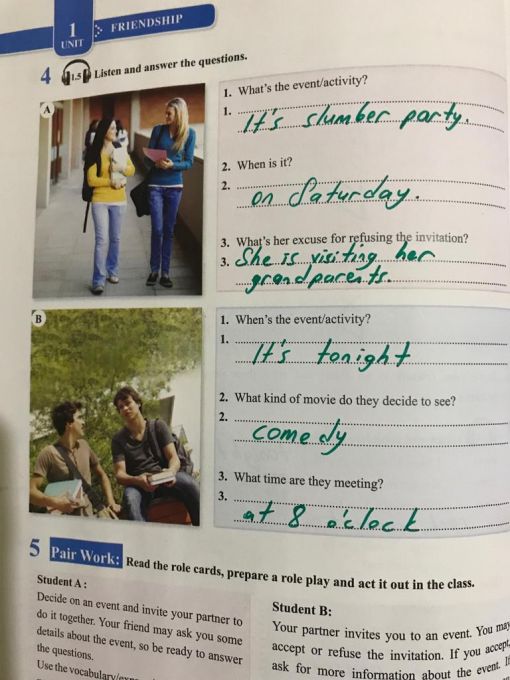 1
UNIT
FRIENDSHIP
4 1.5 Listen and answer the questions.
A
1. What's the event/activity?
1. It's slumber party.
2. When is it?
2. on Saturday.
3. What's her excuse for refusing the invitation?
3. She is visiting her
grandparents.
B
1. When's the event/activity?
1. It's tonight
2. What kind of movie do they decide to see?
2. comedy
3. What time are they meeting?
3. at 8 o'clock
5 Pair Work: Read the role cards, prepare a role play and act it out in the class.
Student A:
Decide on an event and invite your partner to
do it together. Your friend may ask you some
details about the event, so be ready to answer
the questions.
Use the
Student B:
Your partner invites you to an event. You may
accept or refuse the invitation. If you accept,
ask for more information about the event. If